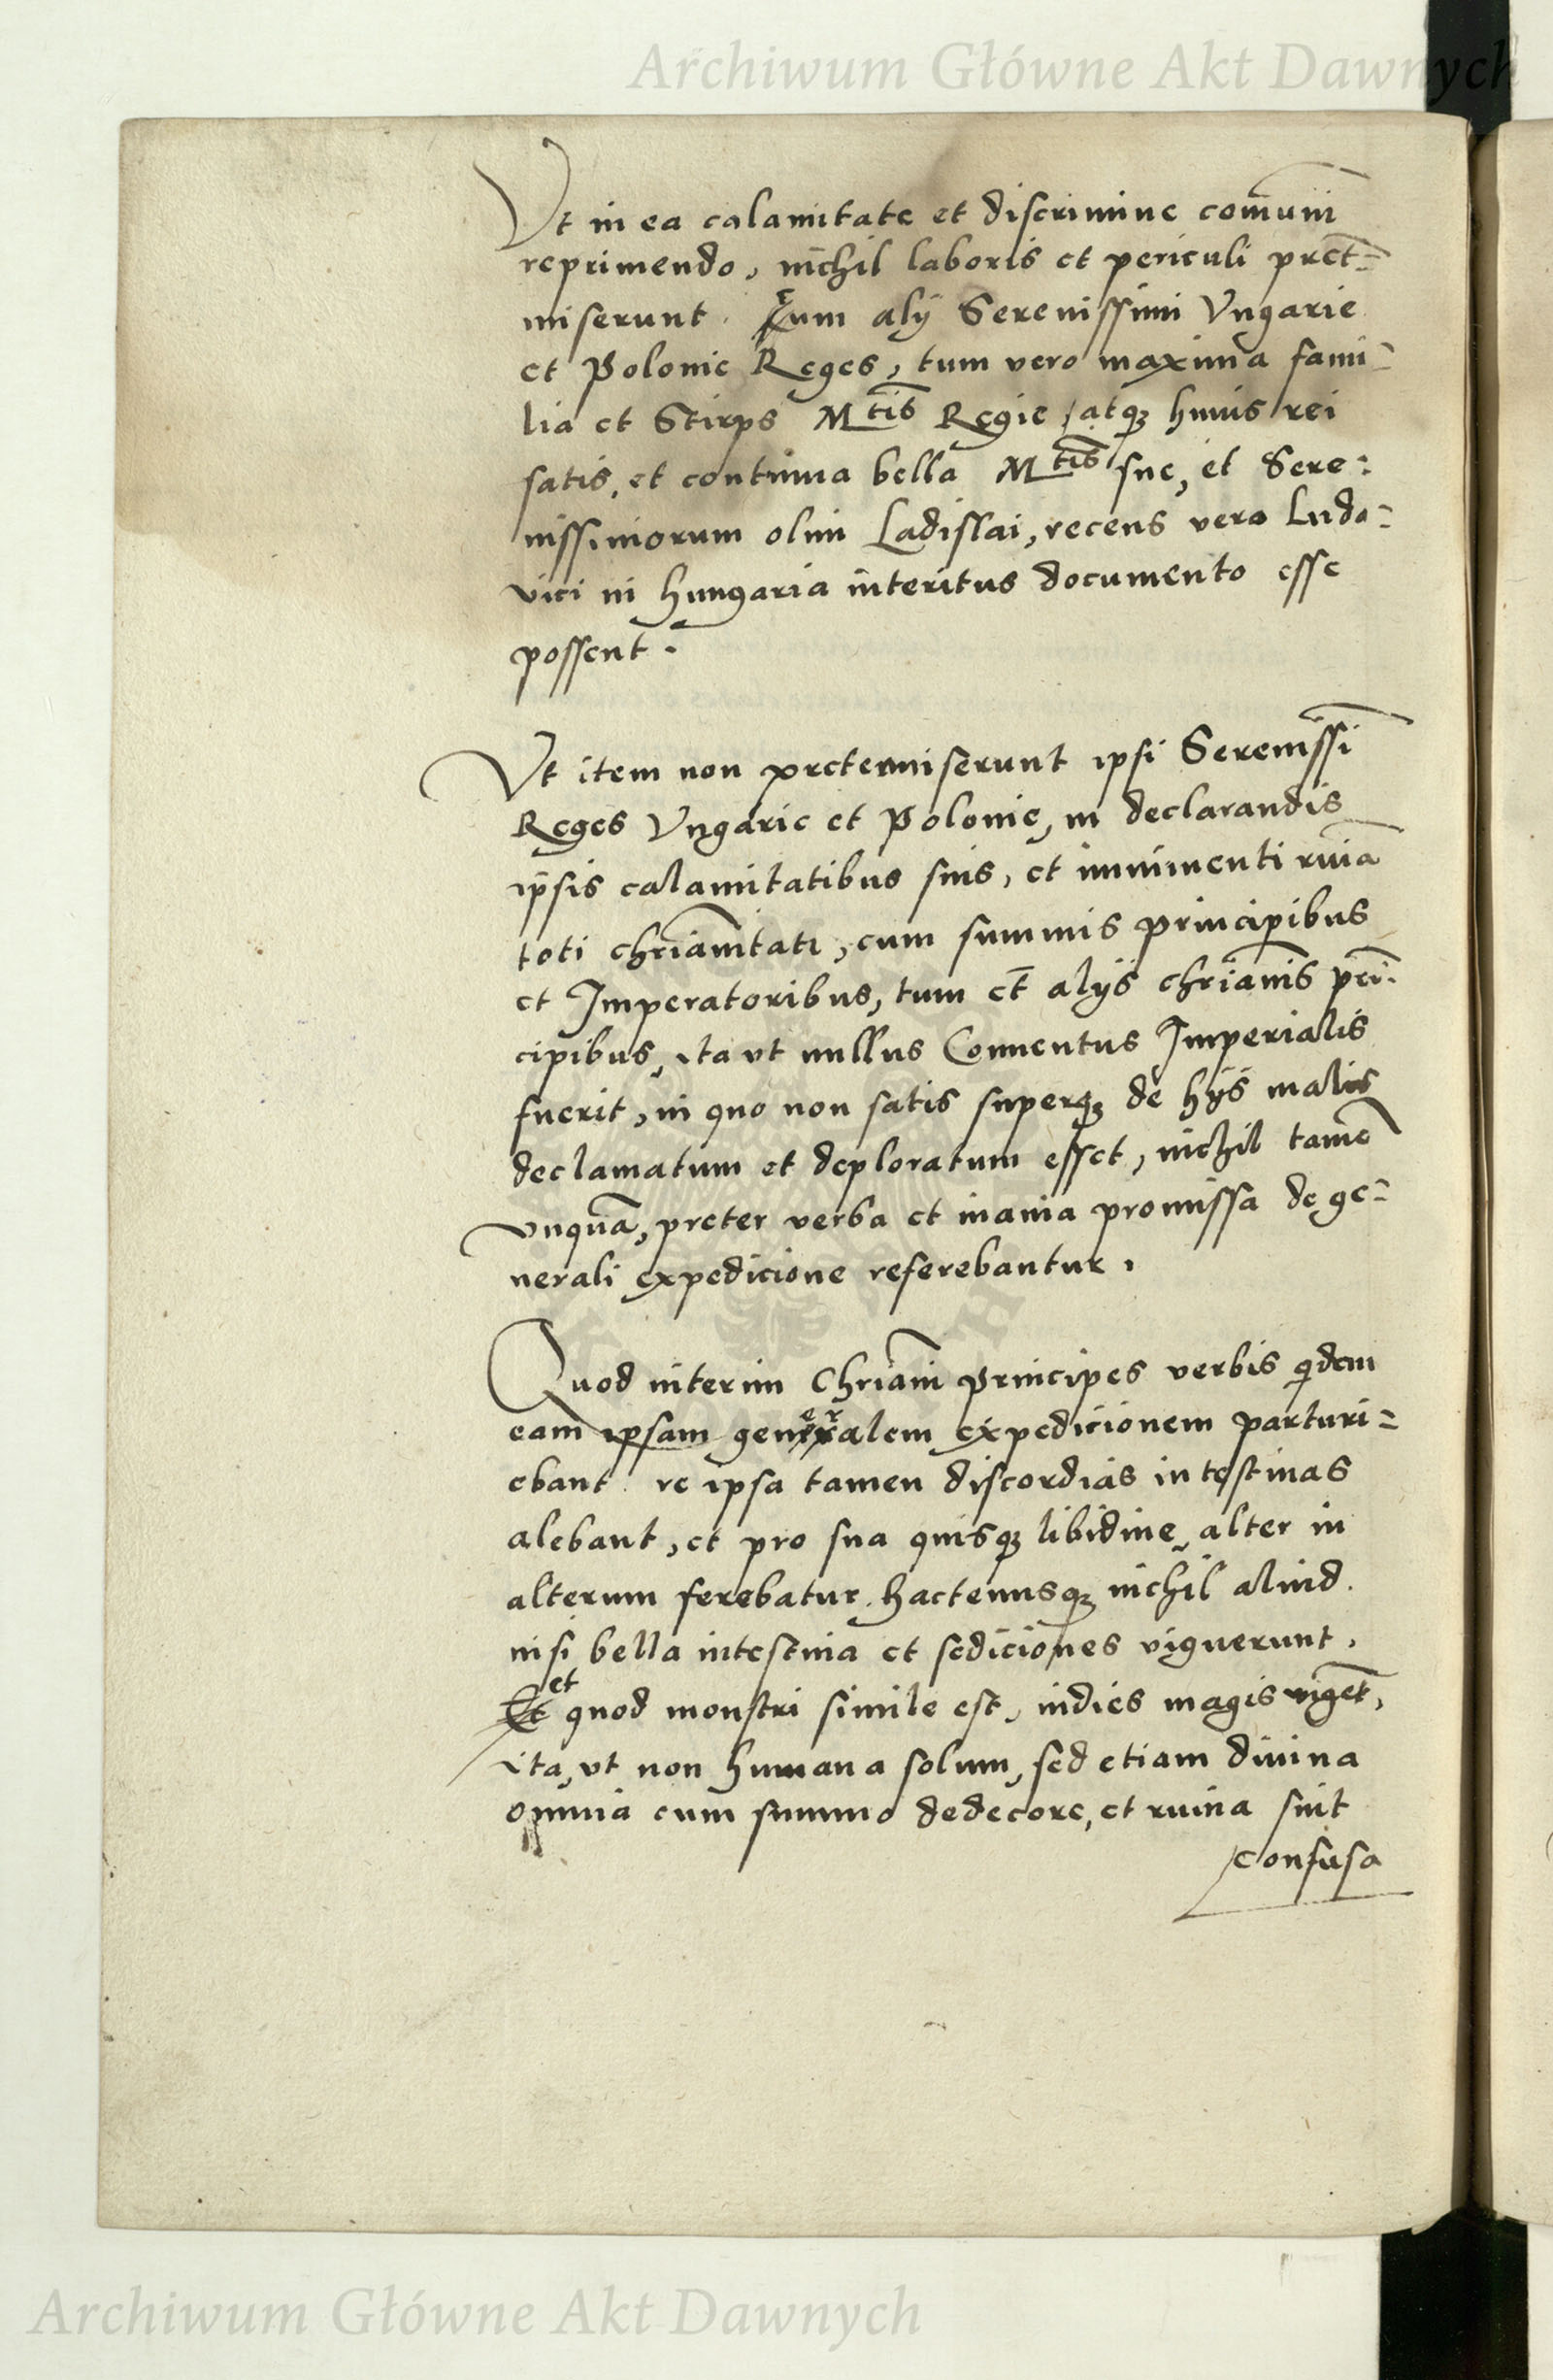 Archiwum Główne Akt Dawnych
Vt in ea calamitate et discrimine com̄uni
reprimendo, nichil laboris et periculi pret̄=
miserunt. Cum alÿ Serenissimi Vngarie
et Polonie Reges, tum vero maxima fami=
lia et Stirps Mtis Regie, atqꝫ huius rei
satis, et continua bella Mtis sue, et Sere=
nissimorum olim Ladislai, recens vero Ludo=
vici in Hungaria interitus documento esse
possent.
Vt item non pretermiserunt ipsi Sereniss̄i
Reges Vngarie et Polonie, in declarandis
ip̄sis calamitatibus suis, et imminenti ruīa
toti chr̄ianitati, cum summis principibus
et Imperatoribus, tum et̄ alÿs chr̄ianis prī=
cipibus, ita vt nullus Conuentus Imperialis
fuerit, in quo non satis superqꝫ de hÿs malis
declamatum et deploratum esset, nichil tamē
vnquā, preter verba et inania promissa de ge=
nerali expedicione referebantur.
Quod interim Chr̄iani Principes verbis qͥdem
eam ipsam generalem expedicionem parturi=
ebant re ipsa tamen discordias intestinas
alebant, et pro sua quisqꝫ libidine, alter in
alterum ferebatur. hactenusqꝫ nichil aliud.
nisi bella intestina et sediciones viguerunt,
Et et quod monstri simile est, indies magis vigēt,
ita, vt non humana solum, sed etiam diuina
omnia cum summo dedecore, et ruina sint
confusa
Archiwum Główne Akt Dawnych